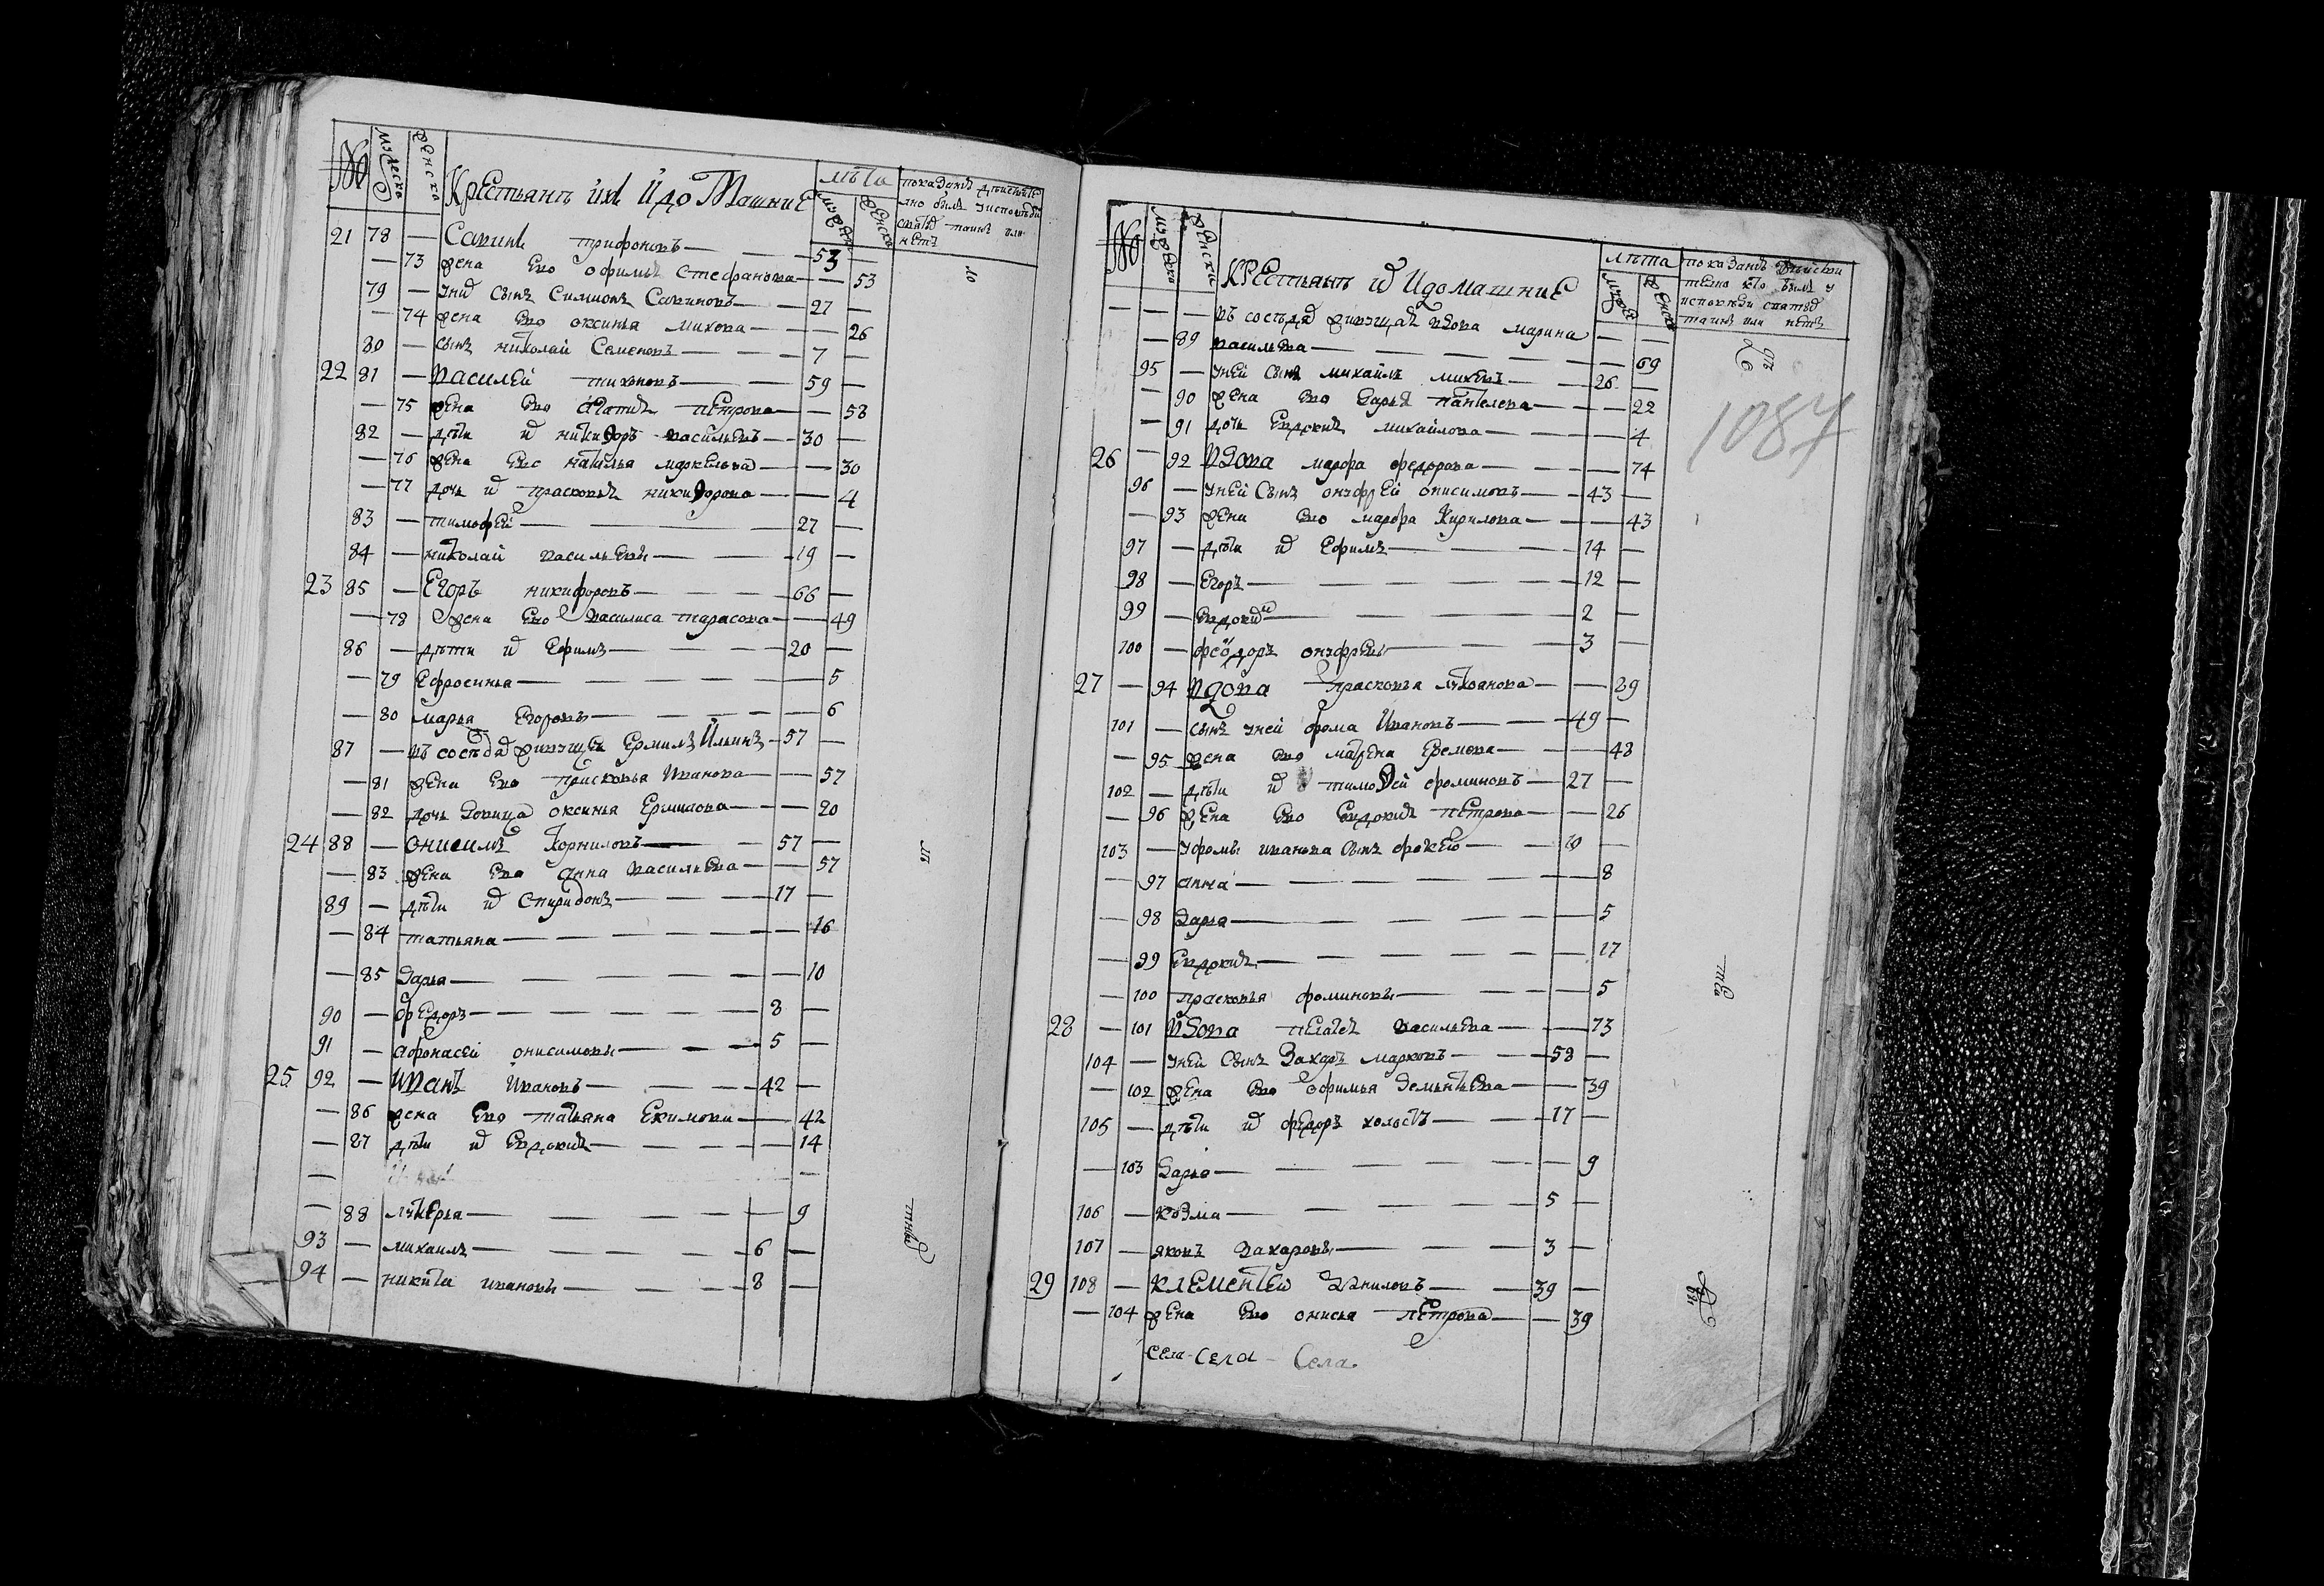 № мужеска женска Крестьянъ ихъ и домашние лѣта мужеска женска
показанiе
21 78 — Савинъ трифоновъ — 53 —
— 73 жена ево офимья Стефанова — — 53
79 — у нихъ сынъ Симионъ Савиновъ — 27 —
— 74 жена ево оксинья михова — — 26
80 — сынъ николай Семеновъ — 7 —
22 81 — василей тихоновъ — 59 —
— 75 жена ево агатия петрова — — 58
82 — дѣти ихъ никифоръ васильевъ — 30 —
— 76 жена ево наталья маркелова — — 30
— 77 дочь ихъ прасковья никифорова — — 4
83 — тимофей — 27 —
84 — николай васильевы — 19 —
23 85 — Егоръ никифоровъ — 66 —
— 78 жена ево василиса тарасова — — 49
86 — дѣти ихъ Ефимъ — 20 —
— 79 Ефросинья — — 5
— 80 марья Егоровы — — 6
87 — въ соседахъ живущей Ермилъ Ильинъ — 57 —
— 81 жена ево прасковья Иванова — — 57
— 82 дочь вдовица оксинья Ермилова — — 20
24 88 — онисимъ Корниловъ — 57 —
— 83 жена ево анна васильева — — 57
89 — дѣти ихъ Спиридонъ — 17 —
— 84 татьяна — — 16
— 85 дарья — — 10
90 — федоръ — 8 —
91 — афонасей онисимовы — 5 —
25 92 — Иванъ Ивановъ — 42 —
— 86 жена ево татьяна Екимова — 42
— 87 дѣти ихъ Евдокия — — 14
— —
— 88 лукерья — — 9
93 — михаилъ — 6 —
94 — никита ивановы — 8 —
№ мужеска женска Крестьянъ ихъ и домашние лѣта мужеска женска
показанiе
— — — въ соседяхъ живущая вдова марина — —
— 89 васильева — — 69
95 — у ней сынъ михайлъ михеевъ — 26 —
— 90 жена ево дарья пантелева — — 22
— 91 дочь Евдокия михайлова — — 4
26 — 92 вдова марфа федорова — — 74
96 — у ней сынъ онуфрей онисимовъ — 43 —
— 93 жена ево марфа Кирилова — — 43
97 — дѣти ихъ Ефимъ — 14 —
98 — Егоръ — 12 —
99 — Евдоким — 2 —
100 — феодоръ онуфревы — 3 —
27 — 94 вдова прасковья лукоанова — — 89
101 — сынъ у ней фома Ивановъ — 49 —
— 95 жена ево матрена Еремеева — — 48
102 — дѣти ихъ тимофей фоминовъ — 27 —
— 96 жена ево Евдокия петрова — — 26
103 — у фомы иванова сынъ фокей — 10 —
— 97 анна — — 8
— 98 дарья — — 5
— 99 Евдокия — — 17
— 100 прасковья фоминовы — — 5
28 — 101 вдова пелагея васильева — — 73
104 — у ней сынъ Захаръ марковъ — 58 —
— 102 жена ево офимья дементьева — — 39
105 — дѣти ихъ федоръ холостъ — 17 —
— 103 дарья — — 9
106 — козма — 5 —
107 — яковъ Захаровы — 3 —
29 108 — клементей даниловъ — 39 —
— 104 жена ево онисья петрова — — 39
села - села - села
1087